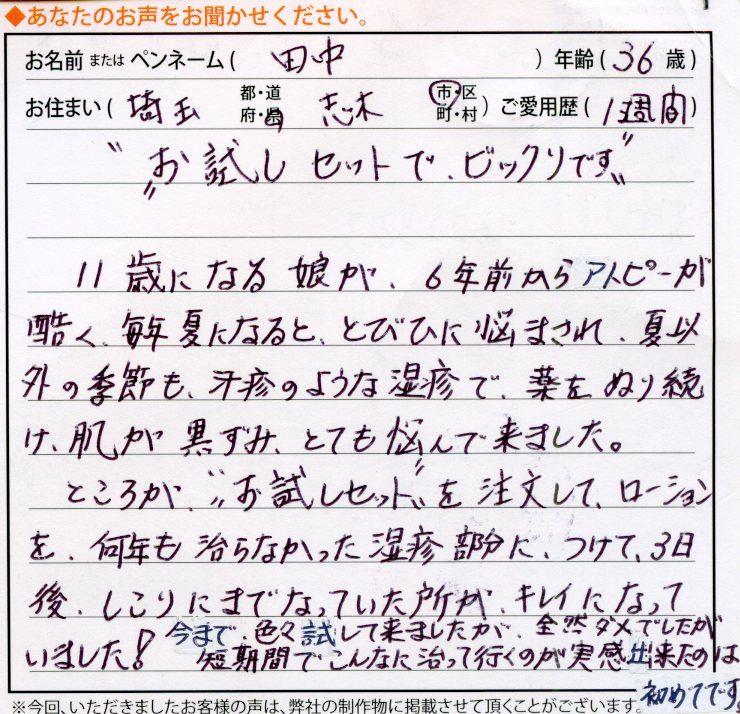 ◆あなたのお声をお聞かせください。
お名前 または ペンネーム( 田中 ) 年齢( 36 歳)
お住まい( 埼玉 都・道 府・県 志木 市・区 町・村 ) ご愛用歴( 1週間 )
"お試しセットで、ビックリです"
11歳になる娘が、6年前からアトピーが
酷く、毎年夏になると、とびひに悩まされ、夏以
外の季節も、牙疹のような湿疹で、薬をぬり続
け、肌が黒ずみ、とても悩んで来ました。
ところが、"お試しセット"を注文して、ローション
を、何年も治らなかった湿疹部分に、つけて、3日
後、しこりにまでなっていた所が、キレイになって
いました!
今まで、色々試して来ましたが、全然ダメでしたが
短期間でこんなに治って行くのが実感出来たのは
初めてです。
※今回、いただきましたお客様の声は、弊社の制作物に掲載させて頂くことがございます。